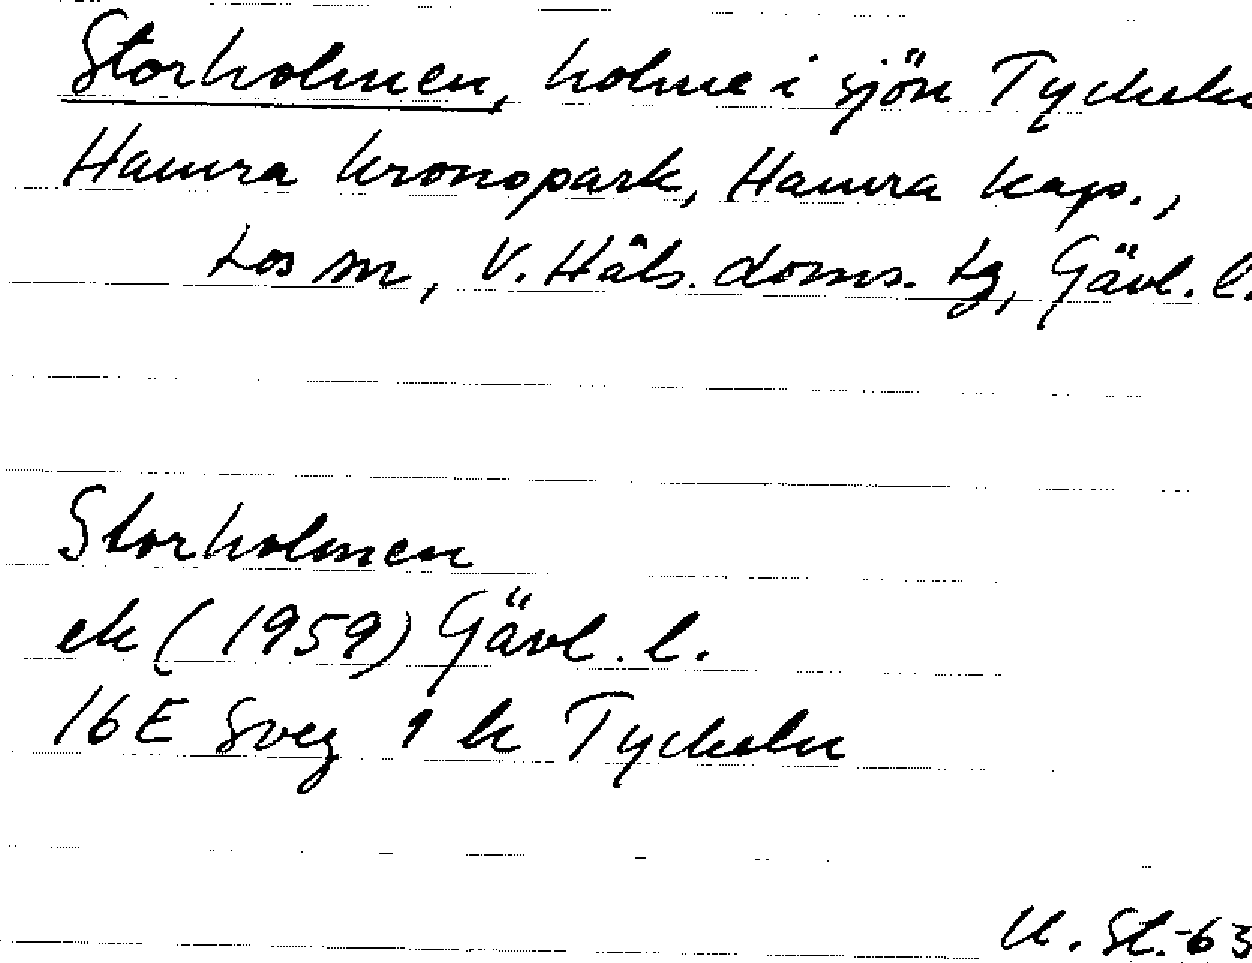 Storholmen, holme i sjön Tyckeln
Hamra kronopark, Hamra kap.,
Los sn, V. Häls. doms. tg, Gävl. l.
Storholmen
ek (1959) Gävl. l.
16E Sveg 1 k Tyckeln
U. St.-63